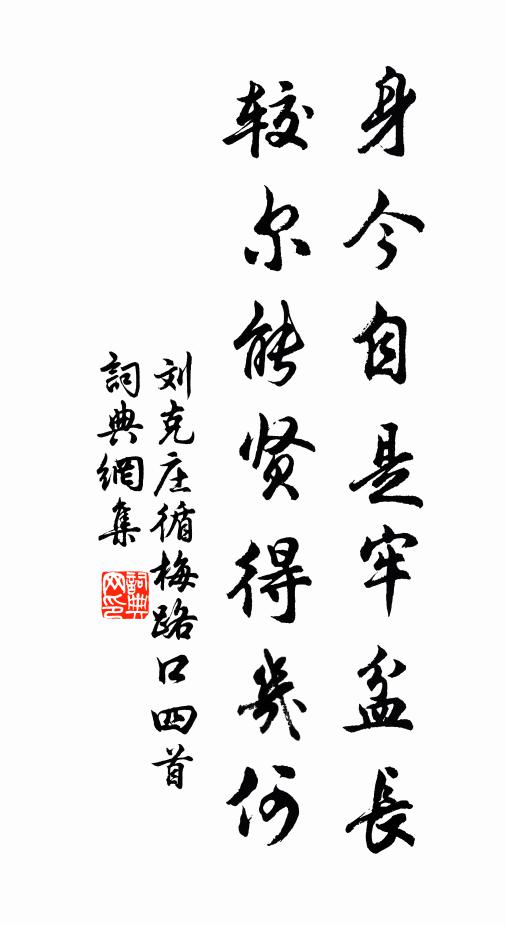 身今自是牢盆長
较尔能贤得幾何
刘克庄循梅路口四首
詞典網集
詞典网印